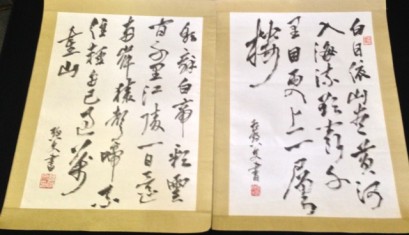 白日依山尽黄河
入海流欲窮千
里目更上一層
楼
書
朝辞白帝彩雲
間千里江陵一日還
両岸猿聲啼不
住軽舟已過萬
重山
書